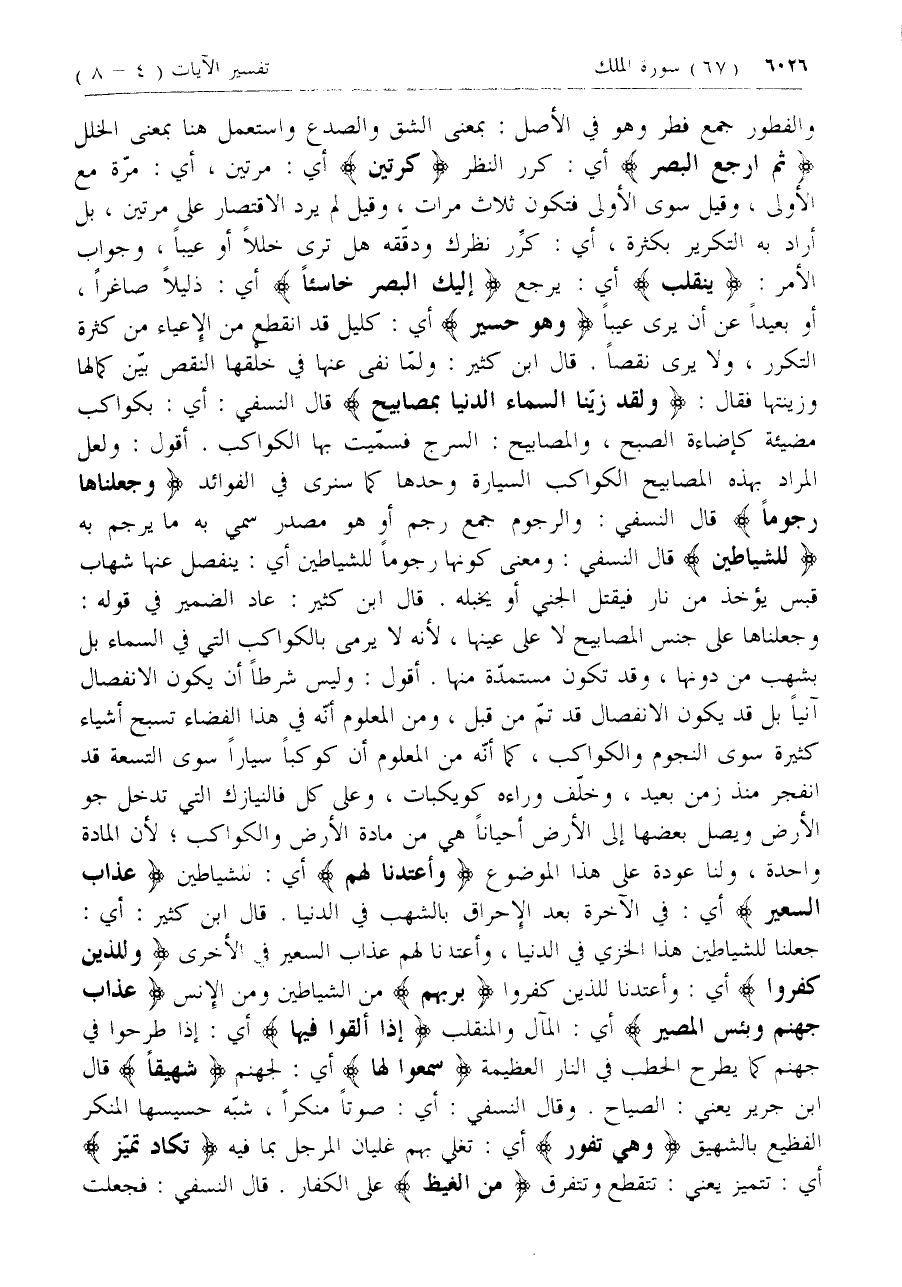 ٦٠٢٦ (٦٧) سورة الملك تفسير الآيات ( ٤ - ٨ )
والفطور جمع فطر وهو في الأصل : بمعنى الشق والصدع واستعمل هنا بمعنى الخلل
﴿ ثم ارجع البصر ﴾ أي : كرر النظر ﴿ كرتين ﴾ أي : مرتين ، أي : مرّة مع
الأولى ، وقيل سوى الأولى فتكون ثلاث مرات ، وقيل لم يرد الاقتصار على مرتين ، بل
أراد به التكرير بكثرة ، أي : كرِّر نظرك ودقّقه هل ترى خللاً أو عيباً ، وجواب
الأمر : ﴿ ينقلب ﴾ أي : يرجع ﴿ إليك البصر خاسئاً ﴾ أي : ذليلاً صاغراً ،
أو بعيداً عن أن يرى عيباً ﴿ وهو حسير ﴾ أي : كليل قد انقطع من الإعياء من كثرة
التكرر ، ولا يرى نقصاً . قال ابن كثير : ولمّا نفى عنها في خلْقها النقص بيّن كمالها
وزينتها فقال : ﴿ ولقد زيّنا السماء الدنيا بمصابيح ﴾ قال النسفي : أي : بكواكب
مضيئة كإضاءة الصبح ، والمصابيح : السرج فسمّيت بها الكواكب . أقول : ولعل
المراد بهذه المصابيح الكواكب السيارة وحدها كما سنرى في الفوائد ﴿ وجعلناها
رجوماً ﴾ قال النسفي : والرجوم جمع رجم أو هو مصدر سمي به ما يرجم به
﴿ للشياطين ﴾ قال النسفي : ومعنى كونها رجوماً للشياطين أي : ينفصل عنها شهاب
قبس يؤخذ من نار فيقتل الجني أو يخبله . قال ابن كثير : عاد الضمير في قوله :
وجعلناها على جنس المصابيح لا على عينها ، لأنه لا يرمى بالكواكب التي في السماء بل
بشهب من دونها ، وقد تكون مستمدّة منها . أقول : وليس شرطاً أن يكون الانفصال
آنياً بل قد يكون الانفصال قد تمّ من قبل ، ومن المعلوم أنّه في هذا الفضاء تسبح أشياء
كثيرة سوى النجوم والكواكب ، كما أنّه من المعلوم أن كوكباً سياراً سوى التسعة قد
انفجر منذ زمن بعيد ، وخلّف وراءه كويكبات ، وعلى كل فالنيازك التي تدخل جو
الأرض ويصل بعضها إلى الأرض أحياناً هي من مادة الأرض والكواكب ؛ لأن المادة
واحدة ، ولنا عودة على هذا الموضوع ﴿ وأعتدنا لهم ﴾ أي : للشياطين ﴿ عذاب
السعير ﴾ أي : في الآخرة بعد الإحراق بالشهب في الدنيا . قال ابن كثير : أي :
جعلنا للشياطين هذا الخزي في الدنيا ، وأعتدنا لهم عذاب السعير في الأخرى ﴿ وللذين
كفروا ﴾ أي : وأعتدنا للذين كفروا ﴿ بربهم ﴾ من الشياطين ومن الإنس ﴿ عذاب
جهنم وبئس المصير ﴾ أي : المآل والمنقلب ﴿ إذا ألقوا فيها ﴾ أي : إذا طرحوا في
جهنم كما يطرح الحطب في النار العظيمة ﴿ سمعوا لها ﴾ أي : لجهنم ﴿ شهيقاً ﴾ قال
ابن جرير يعني : الصياح . وقال النسفي : أي : صوتاً منكراً ، شبّه حسيسها المنكر
الفظيع بالشهيق ﴿ وهي تفور ﴾ أي : تغلي بهم غليان المرجل بما فيه ﴿ تكاد تميّز ﴾
أي : تتميز يعني : تتقطع وتتفرق ﴿ من الغيظ ﴾ على الكفار . قال النسفي : فجعلت